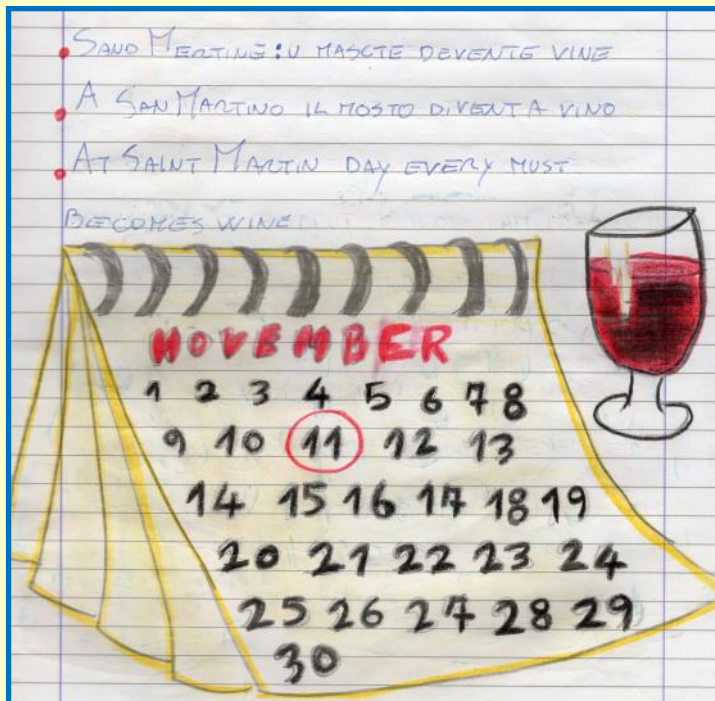 SAND MERTINE: U MASCTE DEVENTE VINE
A SAN MARTINO IL MOSTO DIVENTA VINO
AT SAINT MARTIN DAY EVERY MUST
BECOMES WINE
NOVEMBER
1 2 3 4 5 6 7 8
9 10 11 12 13
14 15 16 17 18 19
20 21 22 23 24
25 26 27 28 29
30